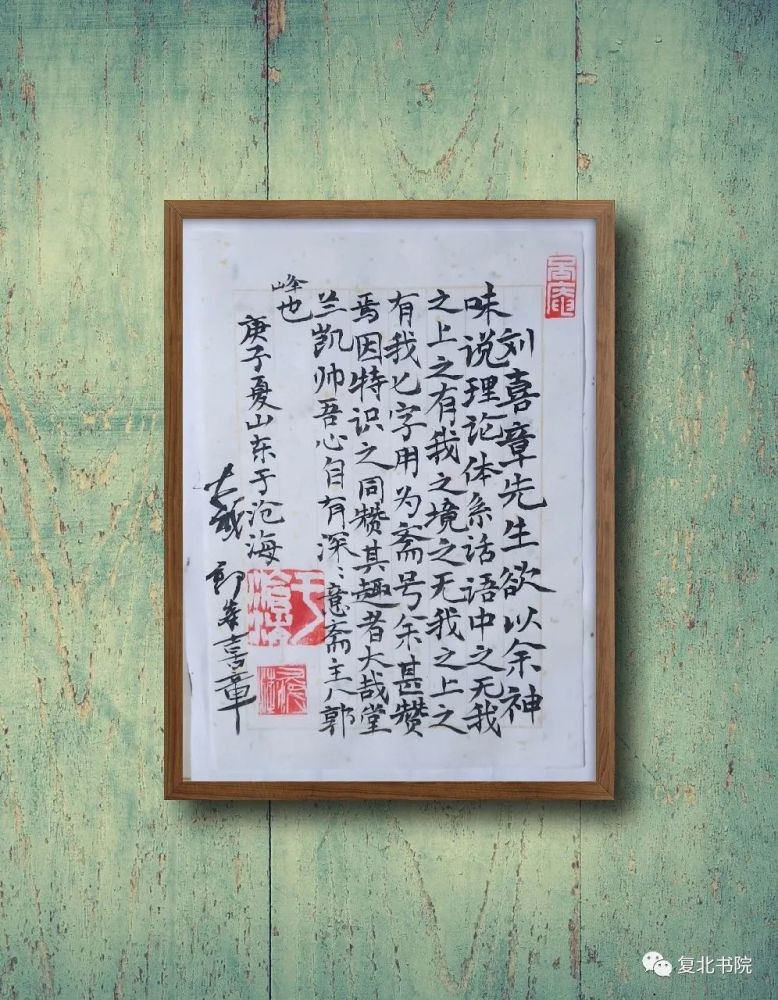 刘喜章先生欲以余神
味说理论体系话语中之无我
之上之有我之境之无我之上之
有我七字用为斋号余甚赞
焉因特识之同赞其趣者大哉堂
兰凯帅吾心自有深〻意斋主人郭
峰也
庚子夏山东于沧海
大哉 喜章
复北书院